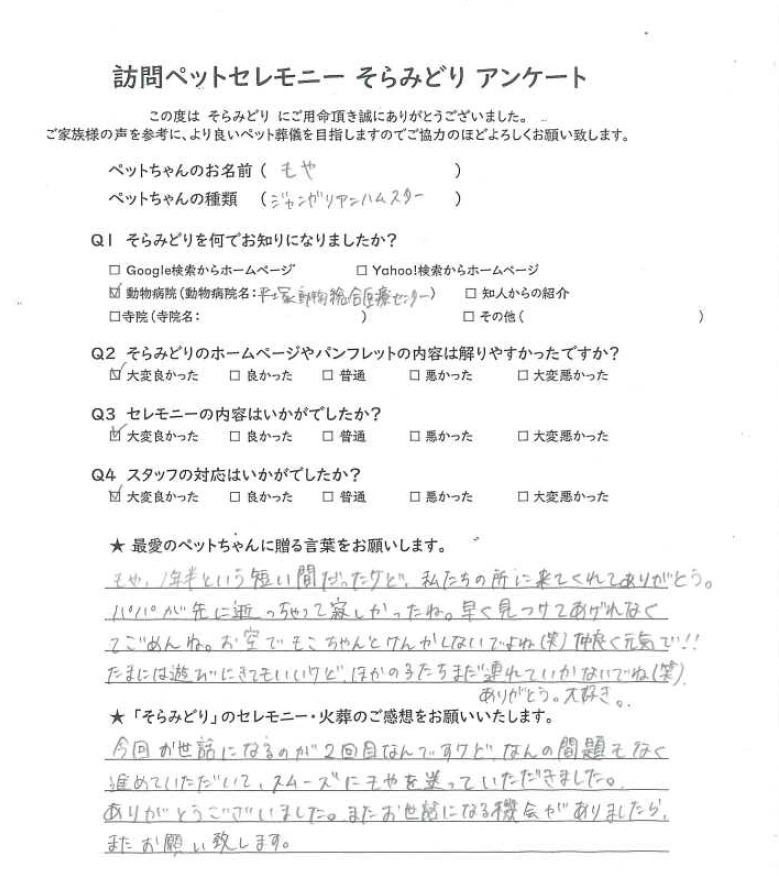 訪問ペットセレモニー そらみどり アンケート
この度は そらみどり にご用命頂き誠にありがとうございました。
ご家族様の声を参考に、より良いペット葬儀を目指しますのでご協力のほどよろしくお願い致します。
ペットちゃんのお名前 ( もや )
ペットちゃんの種類 (ジャンガリアンハムスター )
Q1 そらみどりを何でお知りになりましたか?
□ Google検索からホームページ □ Yahoo!検索からホームページ
☑ 動物病院(動物病院名:平塚動物総合医療センター) □ 知人からの紹介
□寺院(寺院名: ) □ その他( )
Q2 そらみどりのホームページやパンフレットの内容は解りやすかったですか?
☑ 大変良かった □ 良かった □ 普通 □ 悪かった □ 大変悪かった
Q3 セレモニーの内容はいかがでしたか?
☑ 大変良かった □ 良かった □ 普通 □ 悪かった □ 大変悪かった
Q4 スタッフの対応はいかがでしたか?
☑ 大変良かった □ 良かった □ 普通 □ 悪かった □ 大変悪かった
★ 最愛のペットちゃんに贈る言葉をお願いします。
もや、1年半という短い間だったけど、私たちの所に来てくれてありがとう。
パパが先に逝っちゃって寂しかったね。早く見つけてあげれなく
てごめんね。お空でもこちゃんとけんかしないでよね(笑)仲良く元気で!!
たまには遊びにきてもいいけど、ほかの子たちまだ連れていかないでね(笑)
ありがとう。大好き。
★「そらみどり」のセレモニー・火葬のご感想をお願いいたします。
今回お世話になるのが2回目なんですけど、なんの問題もなく
進めていただいて、スムーズにもやを送っていただきました。
ありがとうございました。またお世話になる機会がありましたら、
またお願い致します。